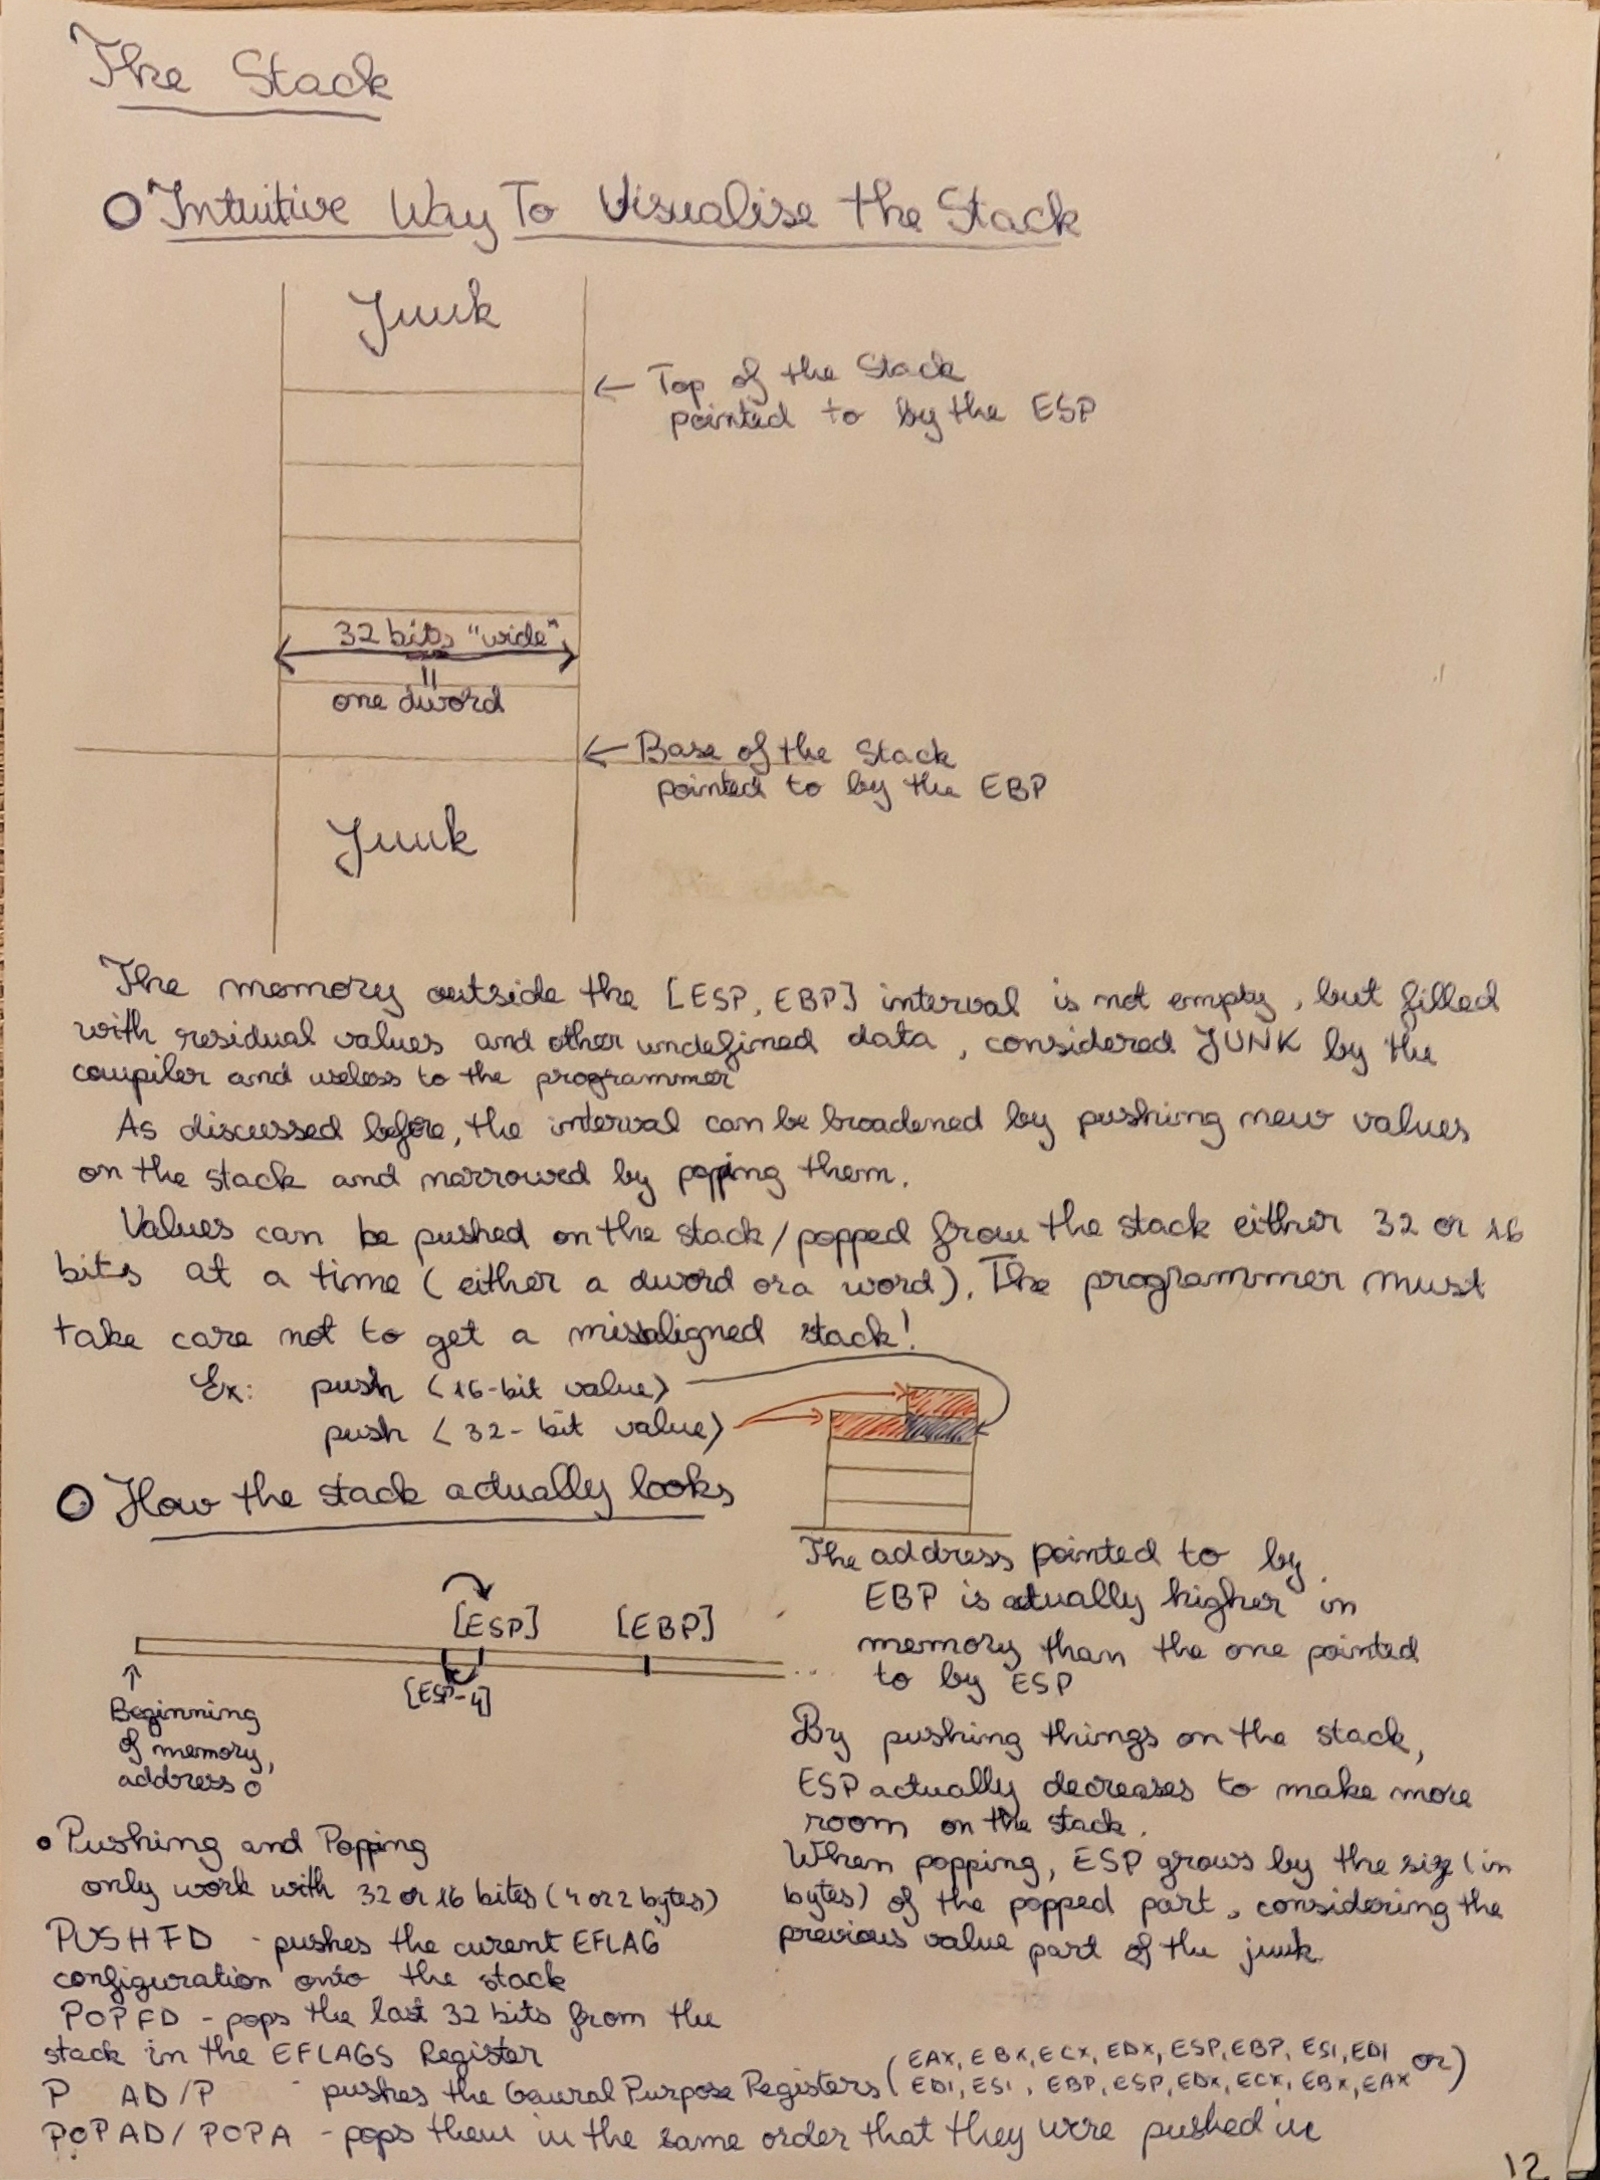 The Stack
Intuitive Way To Visualise the Stack
Junk
← Top of the Stack
pointed to by the ESP
32 bits "wide"
=
one dword
← Base of the Stack
pointed to by the EBP
Junk
The memory outside the [ESP, EBP] interval is not empty, but filled
with residual values and other undefined data, considered JUNK by the
compiler and useless to the programmer
As discussed before, the interval can be broadened by pushing new values
on the stack and narrowed by popping them.
Values can be pushed on the stack/popped from the stack either 32 or 16
bits at a time (either a dword or a word). The programmer must
take care not to get a misaligned stack!
Ex: push <16-bit value>
push <32-bit value>
How the stack actually looks
[ESP] [EBP]
[ESP-4]
...
↑
Beginning
of memory,
address 0
The address pointed to by
EBP is actually higher in
memory than the one pointed
to by ESP
By pushing things on the stack,
ESP actually decreases to make more
room on the stack.
When popping, ESP grows by the size (in
bytes) of the popped part, considering the
previous value part of the junk
Pushing and Popping
only work with 32 or 16 bites (4 or 2 bytes)
PUSHFD - pushes the curent EFLAG
configuration onto the stack
POPFD - pops the last 32 bits from the
stack in the EFLAGS Register
P AD/P - pushes the General Purpose Registers (EAX, EBX, ECX, EDX, ESP, EBP, ESI, EDI or
EDI, ESI, EBP, ESP, EDX, ECX, EBX, EAX)
POPAD/POPA - pops them in the same order that they were pushed in
12